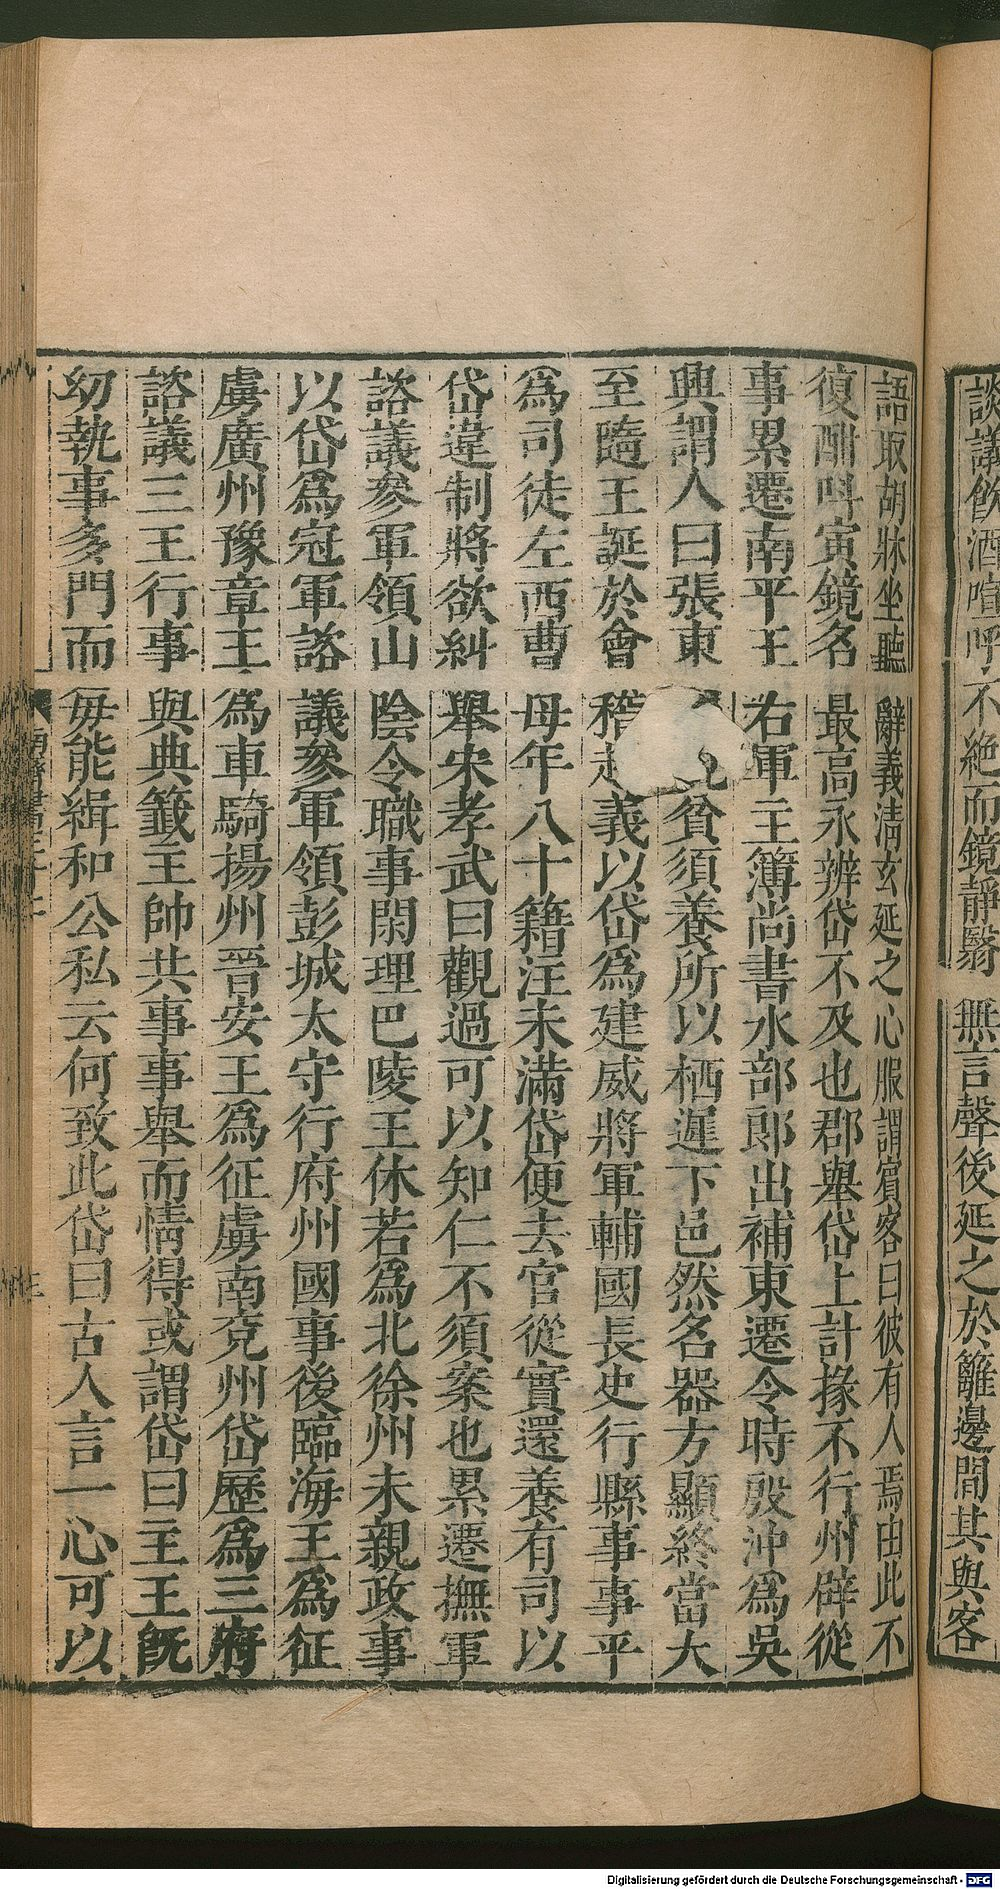 談議飲酒喧呼不絶而鏡靜翳無言聲後延之於籬邊聞其與客
語取胡牀坐聽辭義清玄延之心服謂賓客曰彼有人焉由此不
復酣叫寅鏡名最高永辨岱不及也郡舉岱上計掾不行州辟從
事累遷南平王右軍主簿尚書水部郎出補東遷令時殷沖為吳
興謂人曰張東貧須養所以栖遲下邑然名器方顯終當大
至隨王誕於會稽起義以岱為建威將軍輔國長史行縣事事平
為司徒左西曹母年八十籍注未滿岱便去官從實還養有司以
岱違制將欲糾舉宋孝武曰觀過可以知仁不須案也累遷撫軍
諮議參軍領山陰令職事閑理巴陵王休若為北徐州未親政事
以岱為冠軍諮議參軍領彭城太守行府州國事後臨海王為征
虜廣州豫章王為車騎揚州晉安王為征虜南兗州岱歷為三府
諮議三王行事與典籤主帥共事事舉而情得或謂岱曰主王旣
幼執事多門而每能緝和公私云何致此岱曰古人言一心可以
Digitalisierung gefördert durch die Deutsche Forschungsgemeinschaft - DFG